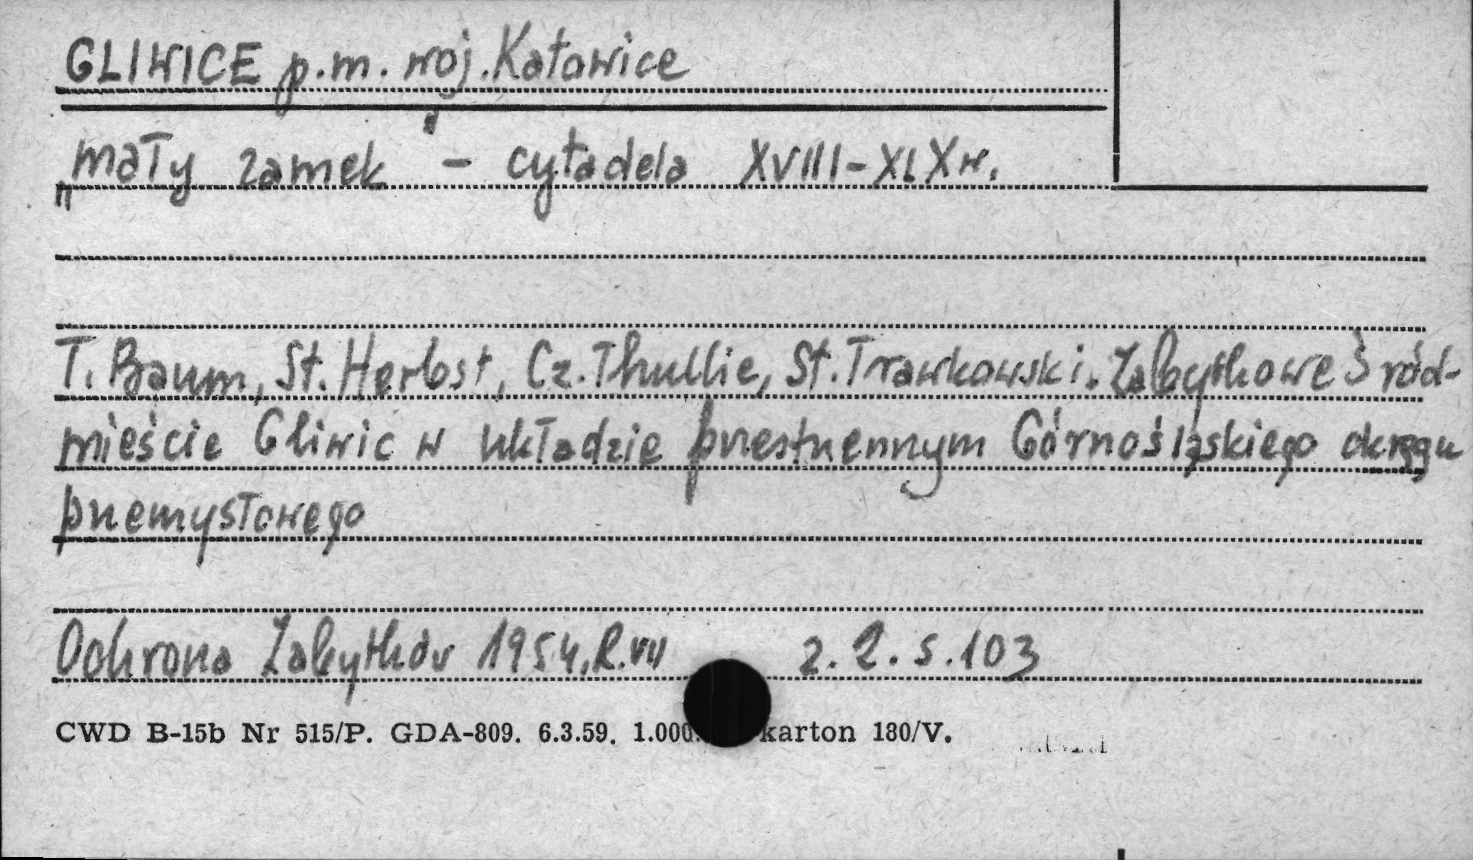 GLIWICE p.m. woj. Katowice
„mały zamek" - cytadela XVIII-XIXw.
T. Baum, St. Herbst, Cz. Thullie, St. Trawkowski. Zabytkowe Śród-
mieście Gliwic w układzie przestrzennym Górnośląskiego okręgu
przemysłowego
Ochrona Zabytków 1954, R. VII z. 2. s. 103
CWD B-15b Nr 515/P. GDA-809. 6.3.59. 1.000. karton 180/V.